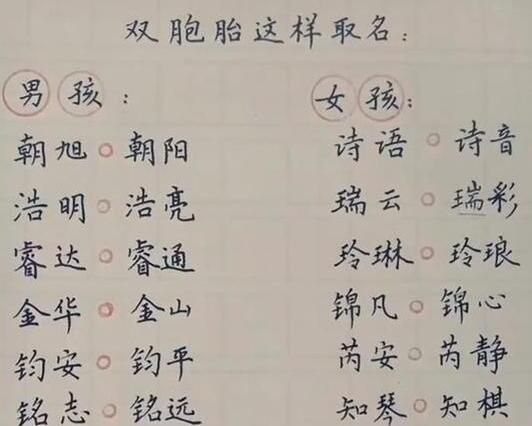 双胞胎这样取名：
男孩：
朝旭○朝阳
浩明○浩亮
睿达○睿通
金华○金山
钧安○钧平
铭志○铭远
女孩：
诗语○诗音
瑞云○瑞彩
玲琳○玲琅
锦凡○锦心
芮安○芮静
知琴○知棋